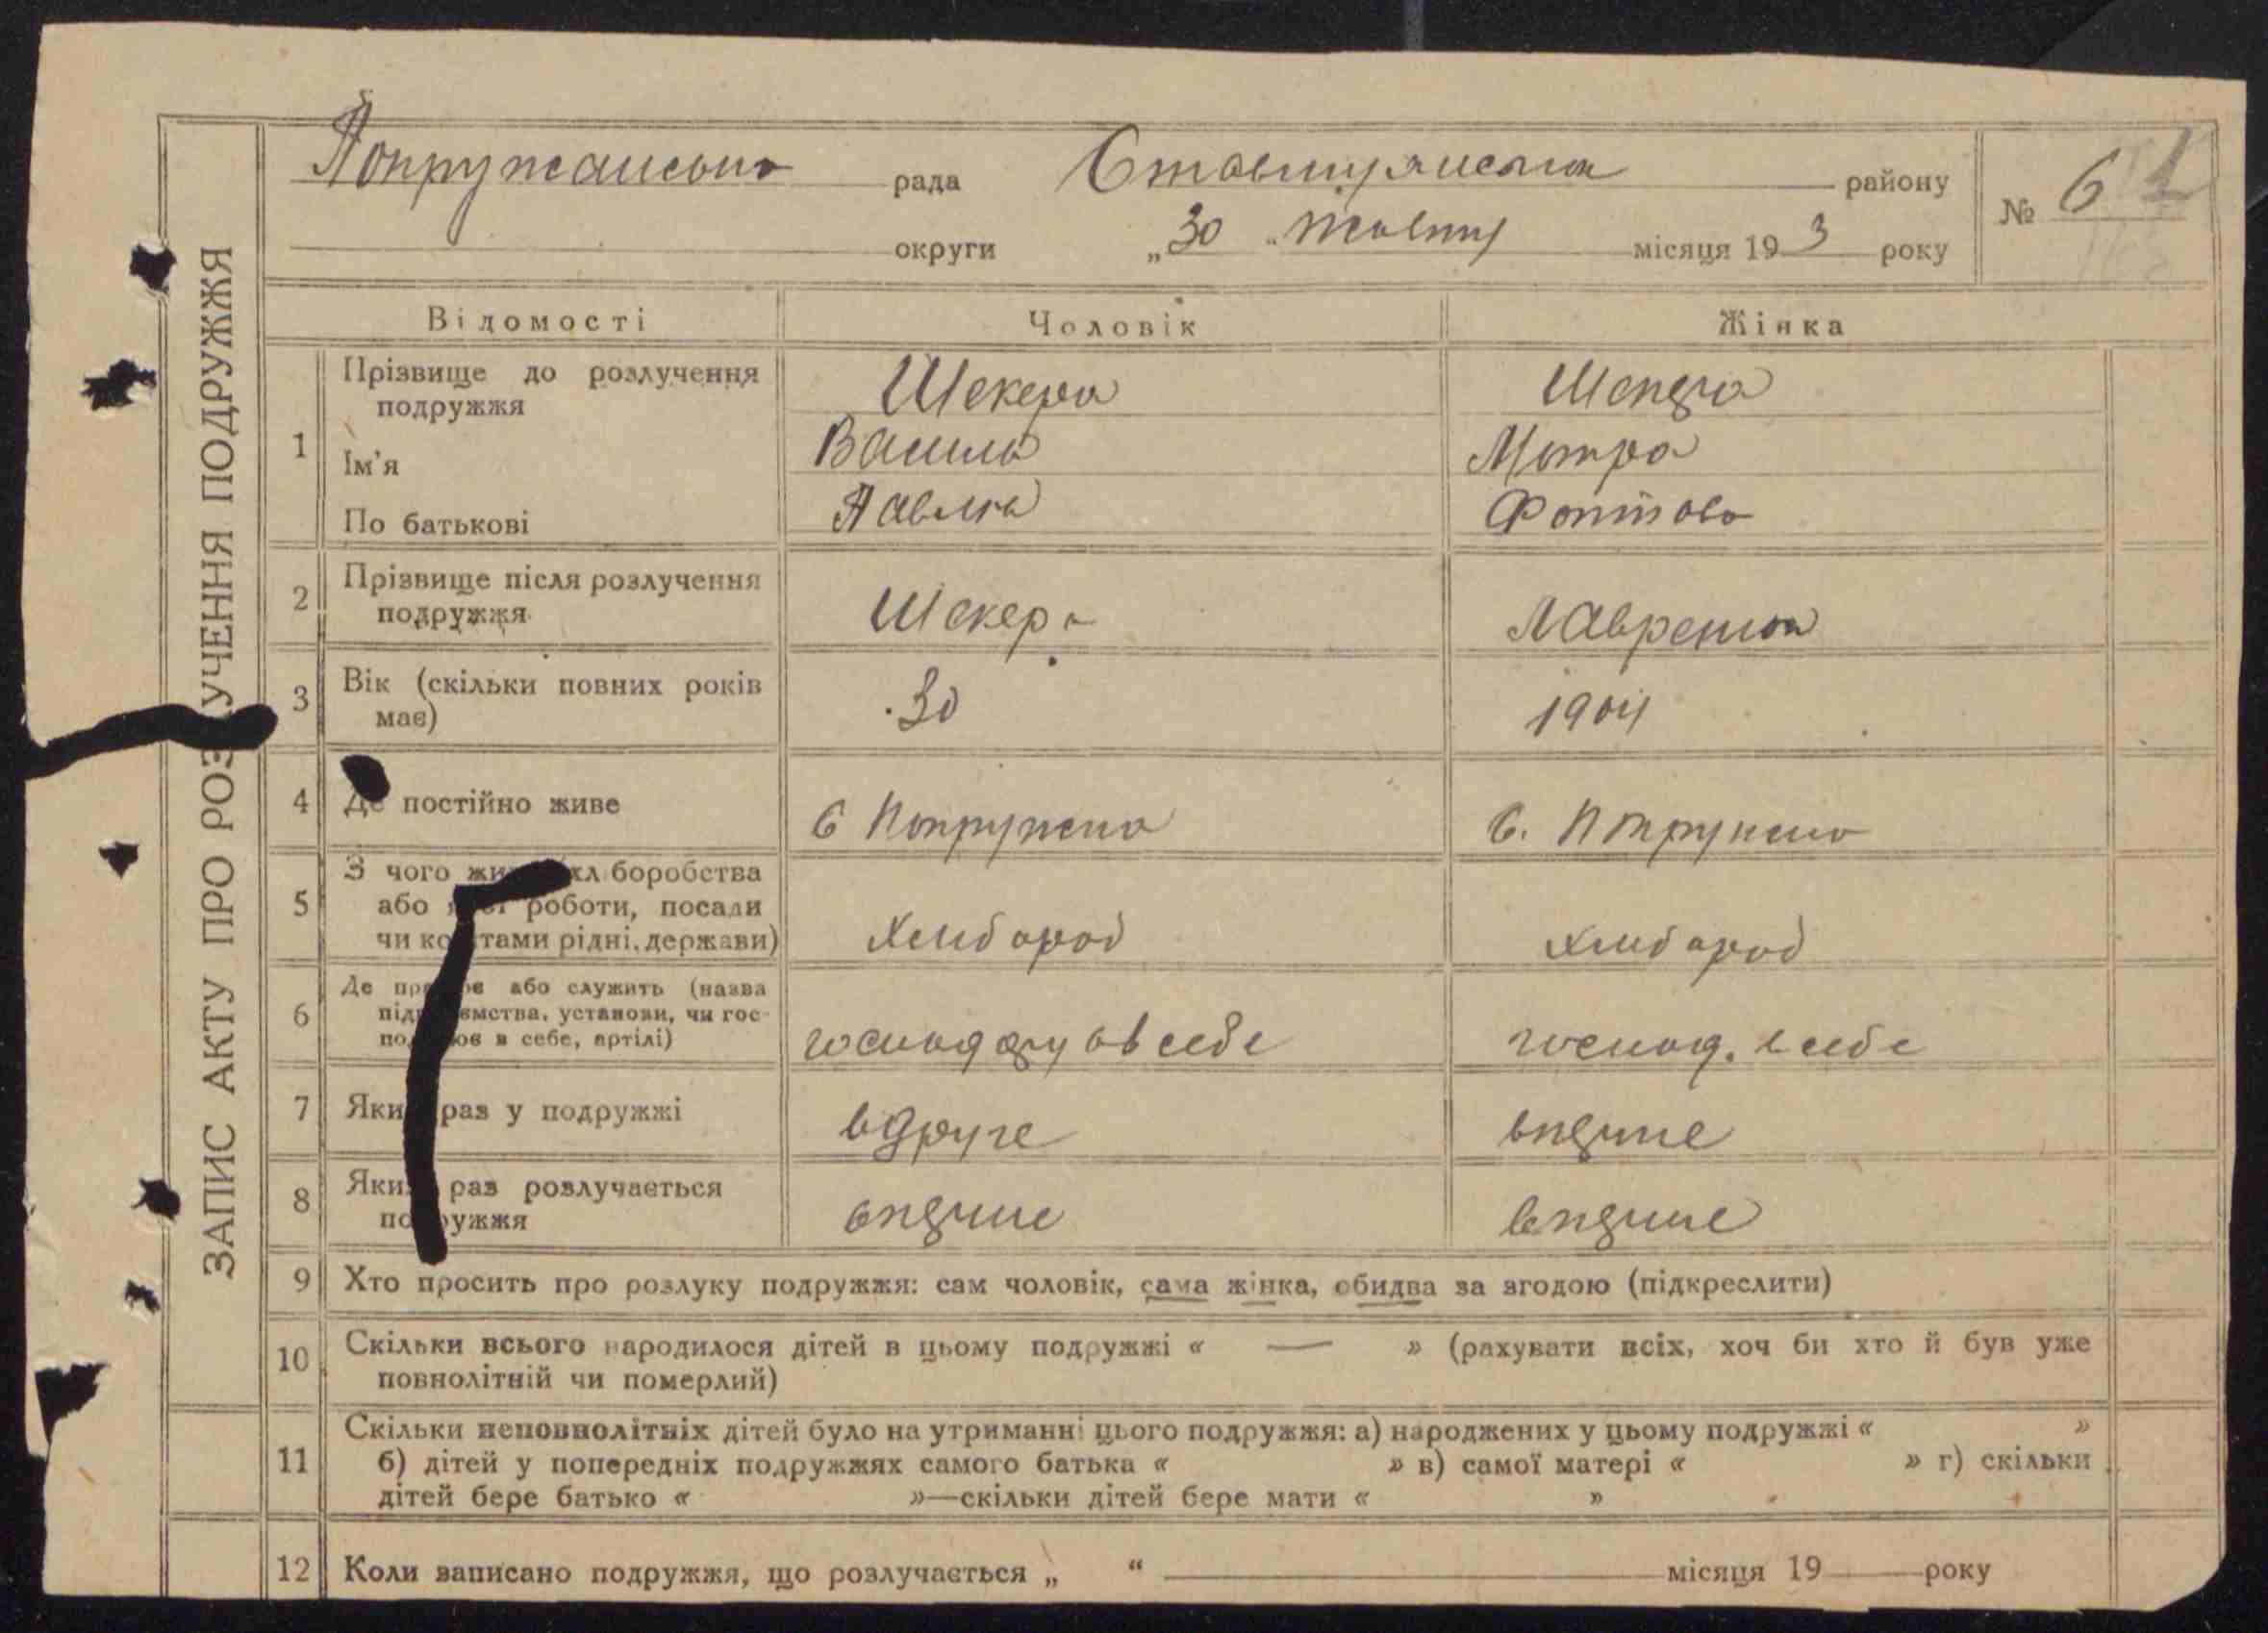 ЗАПИС АКТУ ПРО РОЗ УЧЕННЯ ПОДРУЖЖЯ
Попружанська рада Ставищанськ району № 6
округи „30“ жовтня місяця 193 року
Відомості Чоловік Жінка
1 Прізвище до розлучення подружжя Шекера Шекера
Ім'я Василь Мотра
По батькові Павлов
2 Прізвище після розлучення подружжя Шекера
3 Вік (скільки повних років має) 30 1904
4 Де постійно живе С Попружна С. Попружна
5 З чого жи хл боробства
або роботи, посади
чи ко тами рідні, держави) Хлібороб Хлібороб
6 Де пр ює або служить (назва
під ємства, установи, чи гос-
по ює в себе, артілі) господарув в себе господ. в себе
7 Яки раз у подружжі вдруге вперше
8 Яки раз розлучається
по ружжя вперше вперше
9 Хто просить про розлуку подружжя: сам чоловік, сама жінка, обидва за згодою (підкреслити)
10 Скільки всього народилося дітей в цьому подружжі « — » (рахувати всіх, хоч би хто й був уже
повнолітній чи померлий)
11 Скільки неповнолітніх дітей було на утриманні цього подружжя: а) народжених у цьому подружжі « »
б) дітей у попередніх подружжях самого батька « » в) самої матері « » г) скільки
дітей бере батько « »—скільки дітей бере мати « »
12 Коли записано подружжя, що розлучається „ “ місяця 19 року